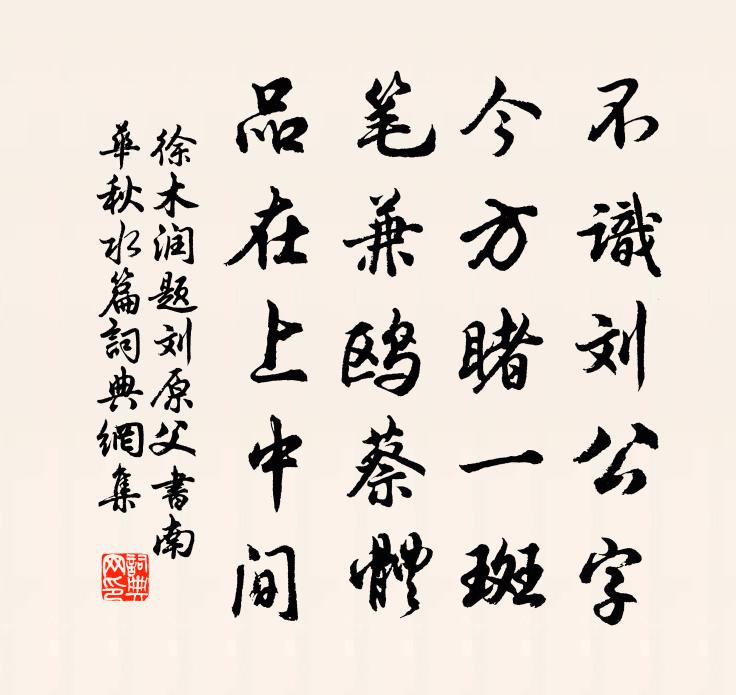 不識刘公字
今方睹一斑
笔兼鸥蔡體
品在上中间
徐木润题刘原父書南
華秋水篇詞典網集
詞典网印